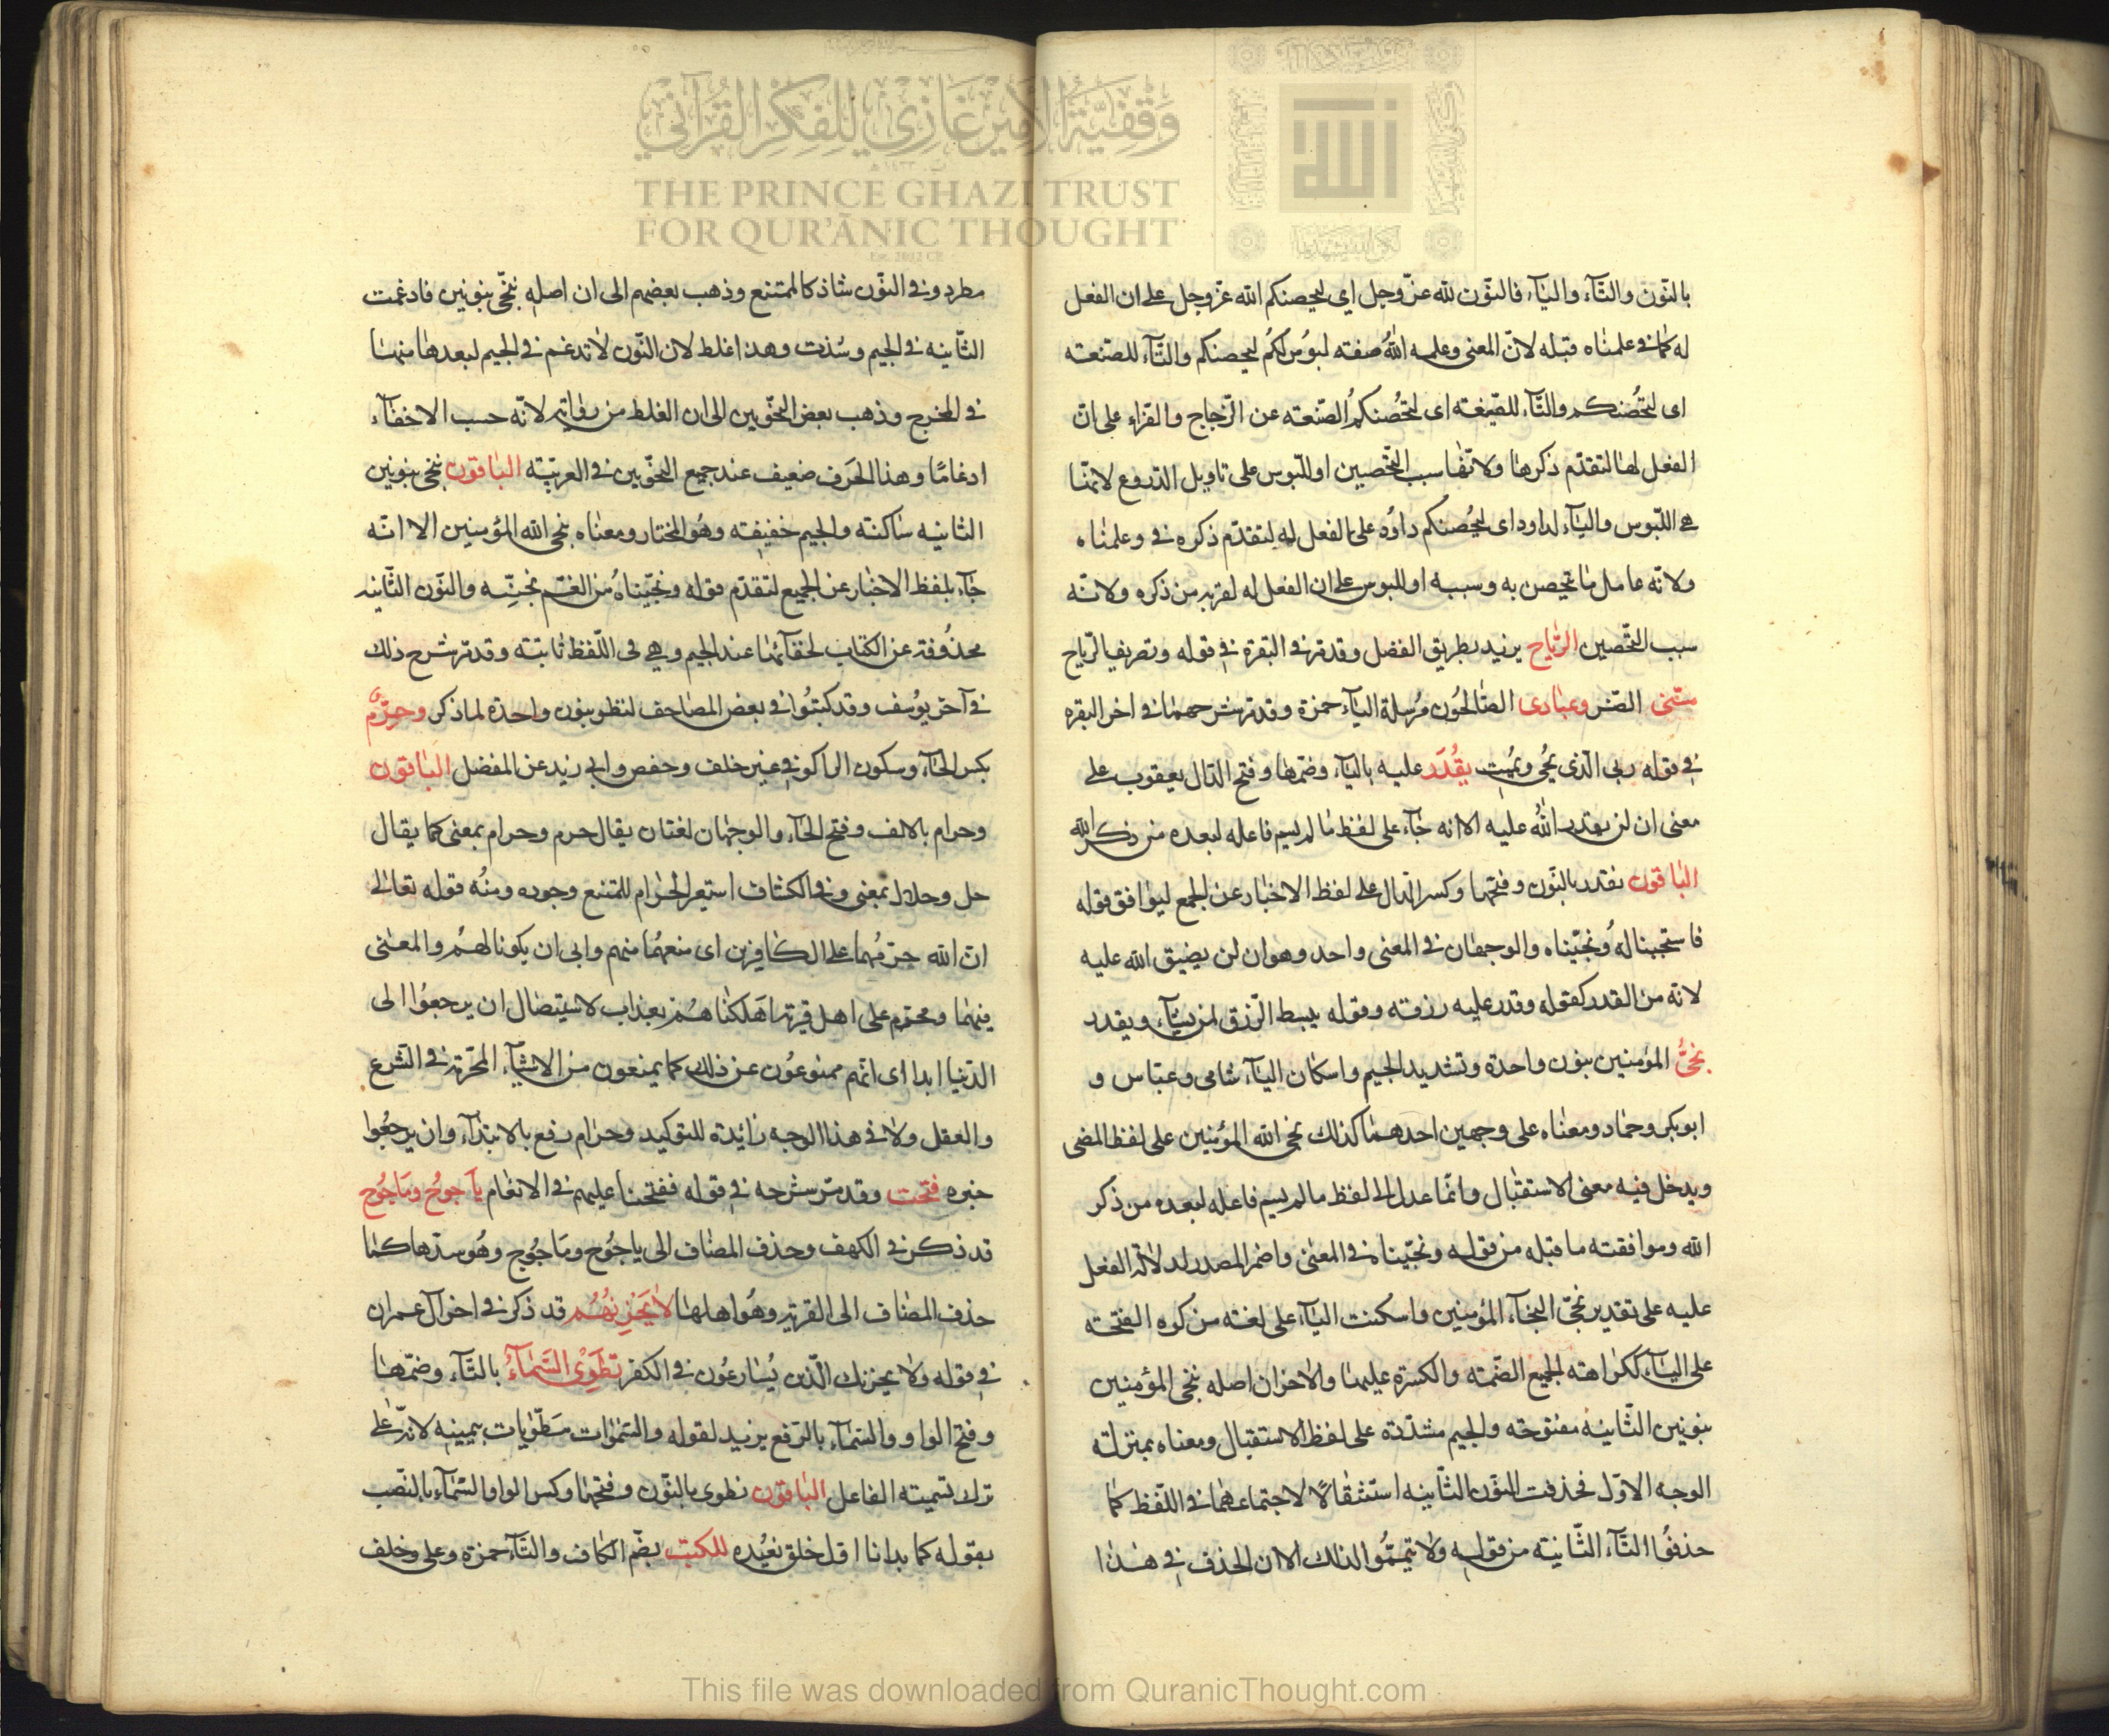 وقفية الأمير غازي للفكر القرآني
THE PRINCE GHAZI TRUST
FOR QUR'ĀNIC THOUGHT
بالنّون والتّآء والياء فالنّون لله عزّ وجل اي ليحصنكم الله عزّ وجل على ان الفعل
له كما في علمناه قبله لانّ المعنى وعلمه اللهُ صفته لبؤس لكُم ليحصنكم والتّآء للصّنعته
اى لتحُصنكم والتّآء للصّنعة اى لتحُصنكمُ الصّنعته عن الزّجاج والفرّاء على انّ
الفعل لها لتقدّم ذكرها ولانّها سبب التّحصين او اللّبوس على تاويل الدّروع لانّها
هي اللّبوس واليآء لداود اى ليحُصنكم داوُد على الفعل له لتقدّم ذكره في وعلمناه
ولانّه عامل ما تحيصن به وسببه او للبوس على ان الفعل له لقربه من ذكره ولانّه
سبب التّحصين الرّياح يزيد بطريق الفضل وقد مرّ في البقرة في قوله وتصريف الرّياح
مسّنى الضّر وعبادى الصّالحُون مُرسلة اليآء حمزة وقد مرّ شرحهما في اخر البقره
في قوله ربى الّذى يُحى ويُميت يقُدَر عليه باليآء وضمّها وفتح الدّال يعقوب على
معنى ان لن يقدر اللهُ عليه الا انه جآء على لفظ ما لم يسم فاعله لبعده من ذكر الله
الباقون نقدر بالنّون وفتحها وكسر الدّال على لفظ الاخبار عن الجمع ليوافق قوله
فاستجبنا لهُ ونجّيناه والوجهان في المعنى واحد وهو ان لن يضيق الله عليه
لانّه من القدر كقوله وقدر عليه رزقه وقوله يبسط الرّزق لمن يشآء ويقدر
نجىّ المؤمنين بنون واحدة وتشديد الجيم واسكان اليآء شامى وعبّاس و
ابوبكر وحمّاد ومعناه على وجهين احدهما كذلك نجى الله المؤمنين على لفظ المضى
ويدخل فيه معنى الاستقبال وانّما عدل الى لفظ ما لم يسم فاعله لبعده من ذكر
الله وموافقته ما قبله من قوله ونجّيناه في المعنى واضمر المصدر لدلالة الفعل
عليه على تقدير نجّى النجآء المؤمنين واسكنت اليآء على لغته من كره الفتحته
على اليآء لكراهته الجميع الضّمته والكسرة عليها والاخر ان اصله ننجى المؤمنين
بنونين الثّانيه مفتوحته والجيم مشدّدة على لفظ الاستقبال ومعناه بمنزلته
الوجه الاوّل فحذفت النّون الثّانيه استثقالًا لاجتماعهما في اللّفظ كما
حذفُوا التّآء الثّانيته من قوله ولا تيمّمُوا لذلك الا ان الحذف في هذا
مطرد وفي النّون شاذ كالممتنع وذهب بعضهم الى ان اصله ننجّى بنونين فادغمت
الثّانيه في الجيم وشذت وهذا غلط لان النّون لا تدغم في الجيم لبعدها منها
في المخرج وذهب بعض النحّويين الى ان الغلط من رواته لانّه حسب الاخفآء
ادغامًا وهذا الحَرف ضعيف عند جميع النحّويين في العربيّته الباقون ننجى بنونين
الثانيه ساكنته والجيم خفيفته وهُو المختار ومعناه ننجى الله المؤمنين الا انّه
جآء بلفظ الاخبار عن الجميع لتقدّم قوله ونجّيناهُ من الغمّ والنّون الثّانيه
محذُوفته عن الكتاب لخفآئها عند الجيم وهي فى اللّفظ ثابتته وقد مرّ شرح ذلك
في آخر يوُسف وقد كتبُوا في بعض المصاحف لننظر بنون واحدة لما ذكر وحِرْم
بكسر الحآء وسكون الرا كوفى غير خلف وحفص وابى زيد عن المفضل الباقون
وحرام بالالف وفتح الحآء والوجهان لغتان يقال حرم وحرام بمعنى كما يقال
حل وحلال بمعنى وفي الكشاف استعير الحرام للمتنع وجوده ومنُه قوله تعالى
انّ الله حرّمُهما على الكافرين اى منعهُما منهم وابى ان يكونا لهُم والمعنى
فيهما ومحرّم على اهل قرية اهلكناهُم بعذاب لاستيصال ان يرجعوُا الى
الدّنيا ابدا اى انّهم ممنوعوُن عن ذلك كما يمنعون من الاشيآء المحرّمة في الشرع
والعقل ولا في هذا الوجه زائدة للتوكيد وحرام رفع بالابتدآء وان يرجعُوا
خبره فتحت وقد مرّ شرحه في قوله ففتحنا عليهم في الانعام يآجوُج ومَاجوُج
قد ذكر في الكهف وحذف المضاف الى ياجُوج ومَاجُوج وهُو سدّها كما
حذف المضاف الى القرية وهُو اهلها لا يَحُزِنهُمُ قد ذكر في اخر آل عمران
في قوله ولا يحزنك الّذين يُسارعُون في الكفر تطوَى السّمآءُ بالتّآء وضمّها
وفتح الواو والسّمآء بالرّفع يزيد لقوله والسّمٰوات مَطّويات بيمينه لانّه على
ترك تسميته الفاعل الباقون نطوى بالنّون وفتحها وكسر الواو السّمآء بالنّصب
بقوله كما بدانا اوّل خلق نعيُده للكتب بضّم الكاف والتّآء حمزة وعلى وخلف
This file was downloaded from QuranicThought.com